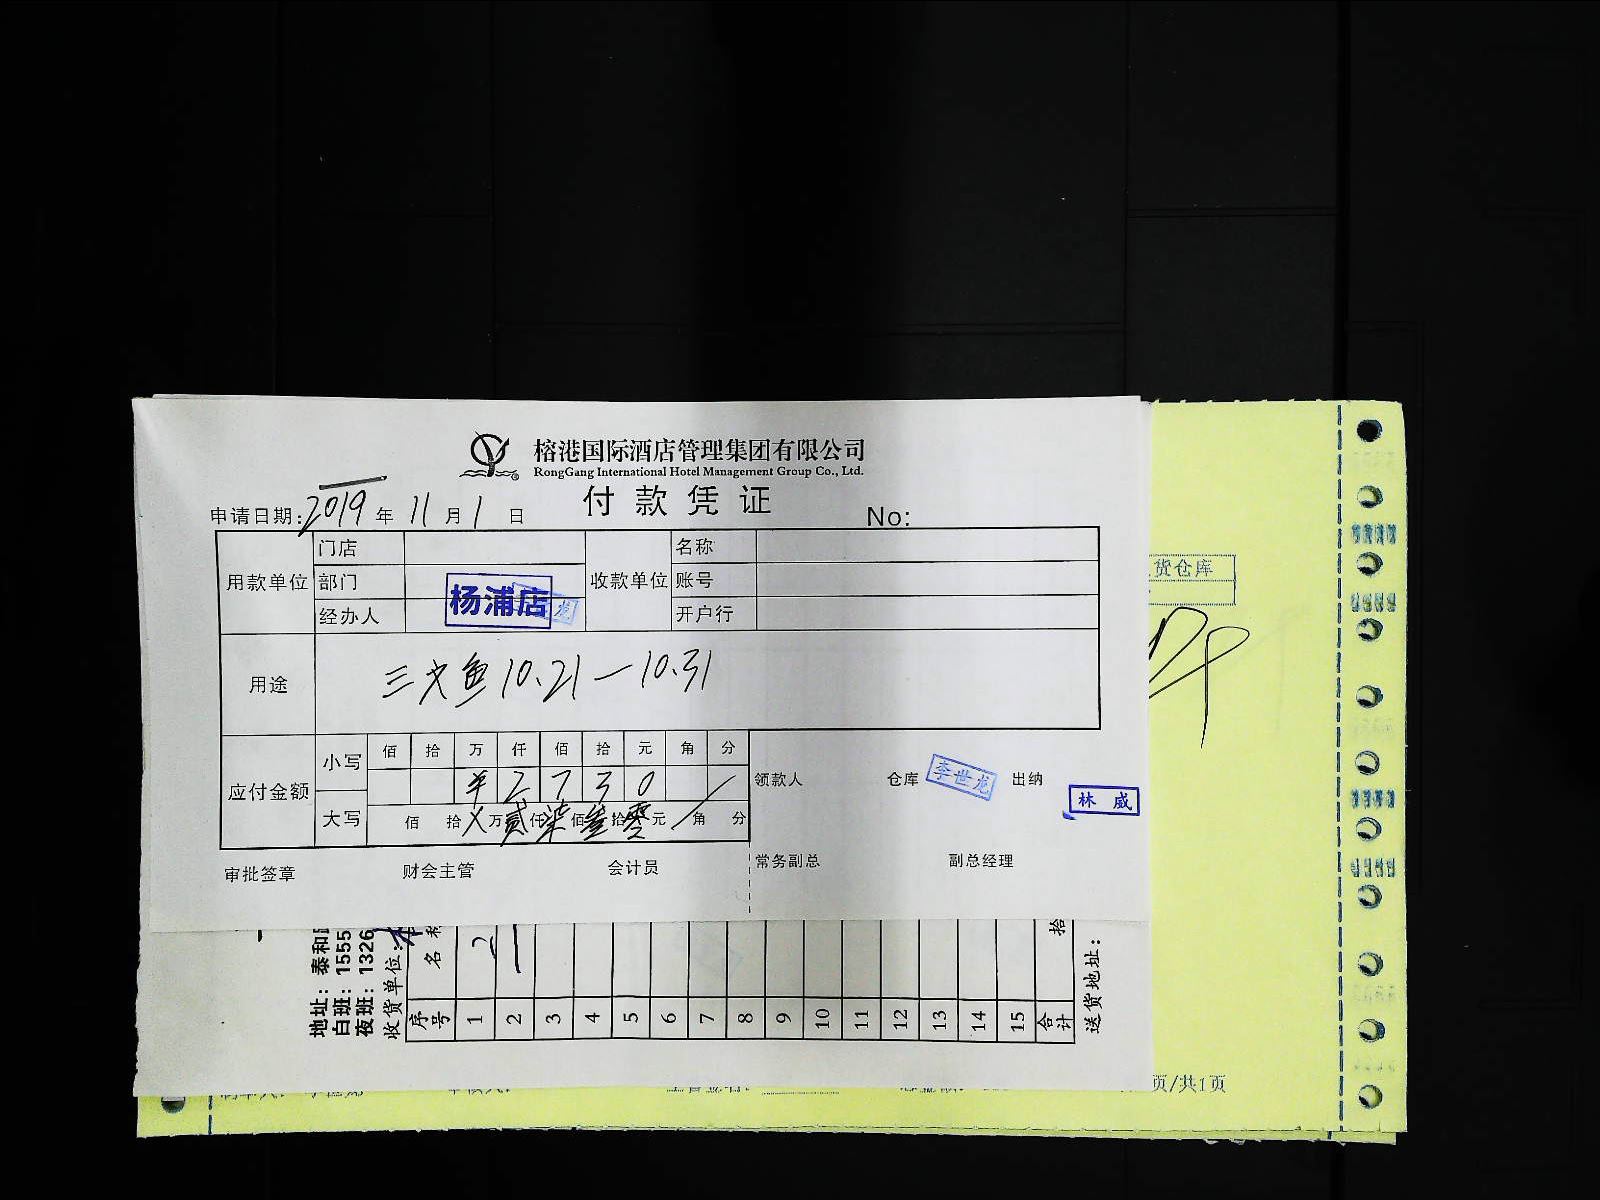 榕港国际酒店管理集团有限公司
RongGang International Hotel Management Group Co., Ltd.
付款凭证
申请日期: 2019 年 11 月 1 日
No:
用款单位 门店 收款单位 名称
部门 账号
经办人 开户行
杨浦店
龙
用途 三文鱼 10.21—10.31
应付金额 小写 佰 拾 万 仟 佰 拾 元 角 分
¥ 2 7 3 0
大写 佰 拾 X 万 贰 仟 柒 佰 叁 拾 零 元 角 分
领款人 仓库 李世龙 出纳 林威
审批签章 财会主管 会计员 常务副总 副总经理
货仓库
地址：泰和
白班：1555
夜班：1326
收货单位：
序号 名称
1 2 3 4 5 6 7 8 9 10 11 12 13 14 15 合计
拾
送货地址：
页/共1页